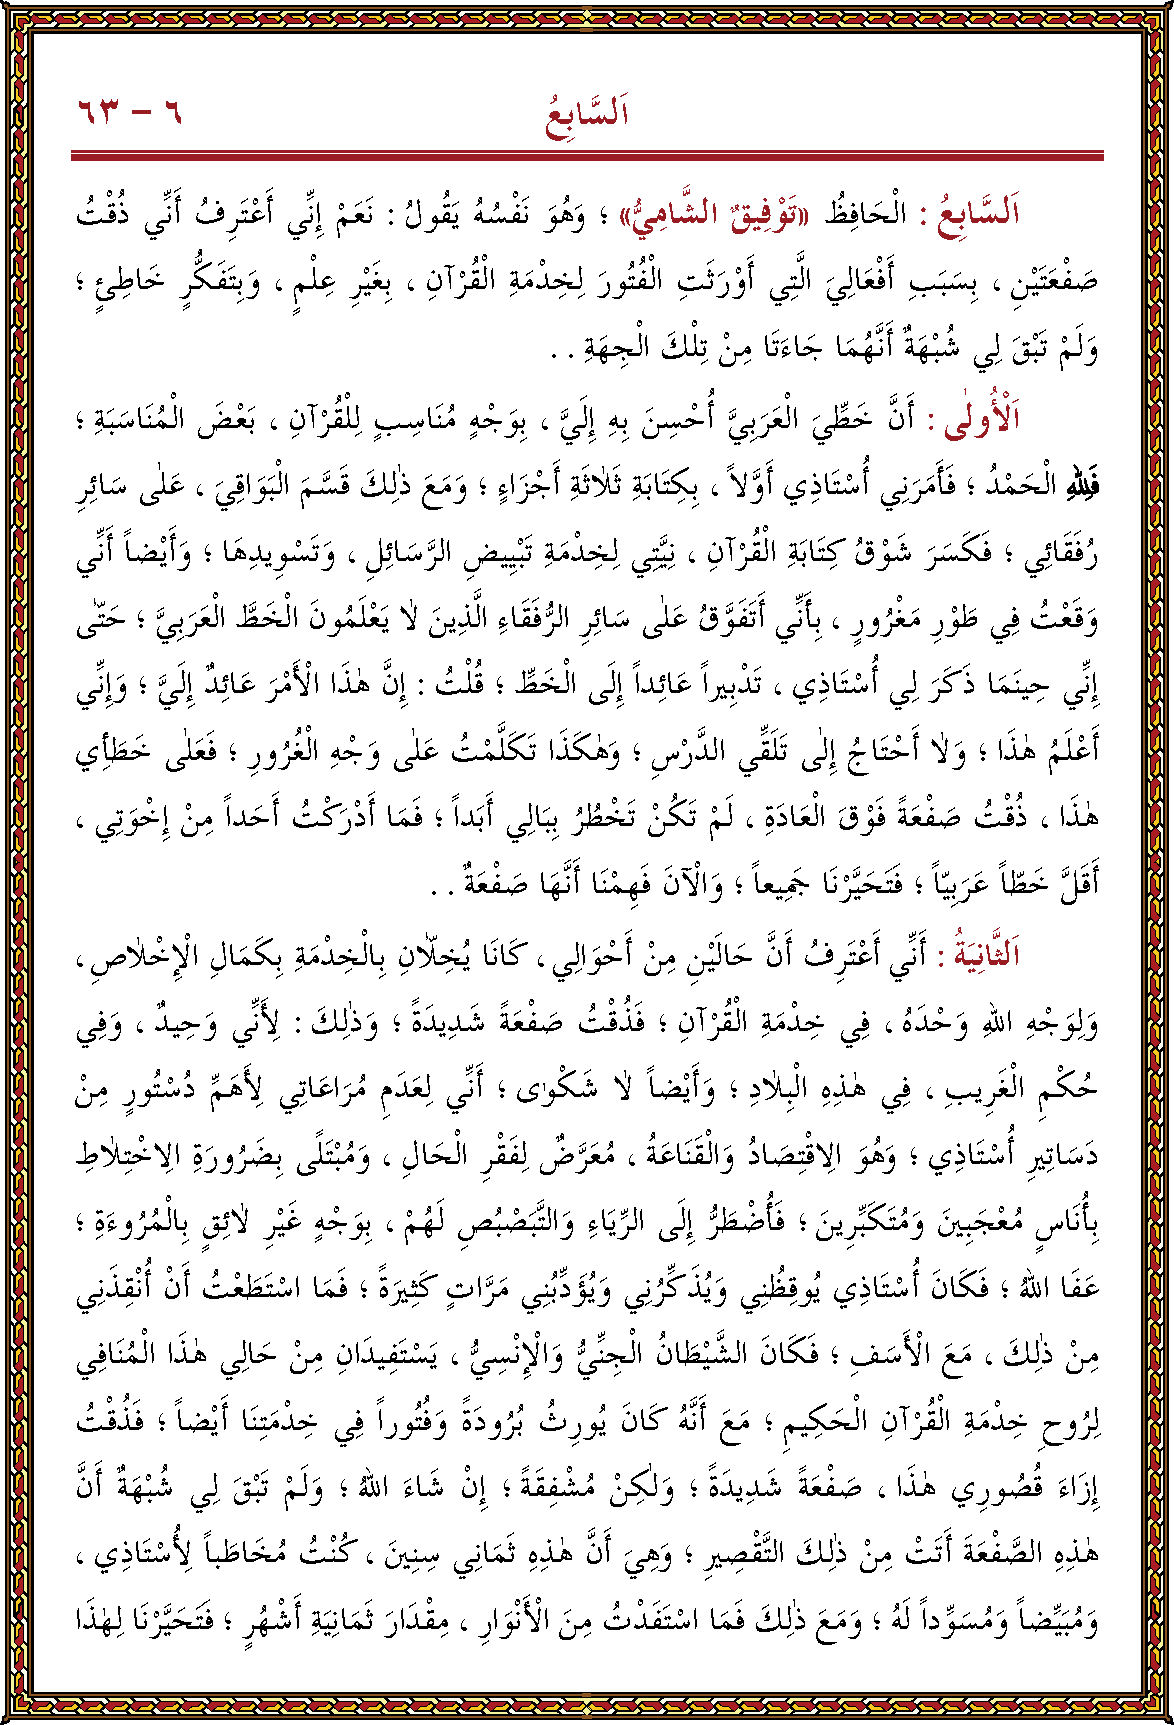 اَلسَّابِعُ ٦ – ٦٣
اَلسَّابِعُ : الْحَافِظُ «تَوْفِيقٌ الشَّامِيُّ» ؛ وَهُوَ نَفْسُهُ يَقُولُ : نَعَمْ إِنِّي أَعْتَرِفُ أَنِّي ذُقْتُ
صَفْعَتَيْنِ ، بِسَبَبِ أَفْعَالِيَ الَّتِي أَوْرَثَتِ الْفُتُورَ لِخِدْمَةِ الْقُرْآنِ ، بِغَيْرِ عِلْمٍ ، وَبِتَفَكُّرٍ خَاطِئٍ ؛
وَلَمْ تَبْقَ لِي شُبْهَةٌ أَنَّهُمَا جَاءَتَا مِنْ تِلْكَ الْجِهَةِ . .
اَلْأُولٰى : أَنَّ خَطِّيَ الْعَرَبِيَّ أُحْسِنَ بِهِ إِلَيَّ ، بِوَجْهٍ مُنَاسِبٍ لِلْقُرْآنِ ، بَعْضَ الْمُنَاسَبَةِ ؛
فَلِلّٰهِ الْحَمْدُ ؛ فَأَمَرَنِي أُسْتَاذِي أَوَّلاً ، بِكِتَابَةِ ثَلٰاثَةِ أَجْزَاءٍ ؛ وَمَعَ ذٰلِكَ قَسَّمَ الْبَوَاقِيَ ، عَلٰى سَائِرِ
رُفَقَائِي ؛ فَكَسَرَ شَوْقُ كِتَابَةِ الْقُرْآنِ ، نِيَّتِي لِخِدْمَةِ تَبْيِيضِ الرَّسَائِلِ ، وَتَسْوِيدِهَا ؛ وَأَيْضاً أَنِّي
وَقَعْتُ فِي طَوْرِ مَغْرُورٍ ، بِأَنِّي أَتَفَوَّقُ عَلٰى سَائِرِ الرُّفَقَاءِ الَّذِينَ لٰا يَعْلَمُونَ الْخَطَّ الْعَرَبِيَّ ؛ حَتّٰى
إِنِّي حِينَمَا ذَكَرَ لِي أُسْتَاذِي ، تَدْبِيراً عَائِداً إِلَى الْخَطِّ ؛ قُلْتُ : إِنَّ هٰذَا الْأَمْرَ عَائِدٌ إِلَيَّ ؛ وَإِنِّي
أَعْلَمُ هٰذَا ؛ وَلٰا أَحْتَاجُ إِلٰى تَلَقِّي الدَّرْسِ ؛ وَهٰكَذَا تَكَلَّمْتُ عَلٰى وَجْهِ الْغُرُورِ ؛ فَعَلٰى خَطَأِي
هٰذَا ، ذُقْتُ صَفْعَةً فَوْقَ الْعَادَةِ ، لَمْ تَكُنْ تَخْطُرُ بِبَالِي أَبَداً ؛ فَمَا أَدْرَكْتُ أَحَداً مِنْ إِخْوَتِي ،
أَقَلَّ خَطّاً عَرَبِيّاً ؛ فَتَحَيَّرْنَا جَمِيعاً ؛ وَالْآنَ فَهِمْنَا أَنَّهَا صَفْعَةٌ . .
اَلثَّانِيَةُ : أَنِّي أَعْتَرِفُ أَنَّ حَالَيْنِ مِنْ أَحْوَالِي ، كَانَا يُخِلّٰانِ بِالْخِدْمَةِ بِكَمَالِ الْإِخْلٰاصِ ،
وَلِوَجْهِ اللهِ وَحْدَهُ ، فِي خِدْمَةِ الْقُرْآنِ ؛ فَذُقْتُ صَفْعَةً شَدِيدَةً ؛ وَذٰلِكَ : لِأَنِّي وَحِيدٌ ، وَفِي
حُكْمِ الْغَرِيبِ ، فِي هٰذِهِ الْبِلٰادِ ؛ وَأَيْضاً لٰا شَكْوٰى ؛ أَنِّي لِعَدَمِ مُرَاعَاتِي لِأَهَمِّ دُسْتُورٍ مِنْ
دَسَاتِيرِ أُسْتَاذِي ؛ وَهُوَ الِاقْتِصَادُ وَالْقَنَاعَةُ ، مُعَرَّضٌ لِفَقْرِ الْحَالِ ، وَمُبْتَلًى بِضَرُورَةِ الِاخْتِلٰاطِ
بِأُنَاسٍ مُعْجَبِينَ وَمُتَكَبِّرِينَ ؛ فَأُضْطَرُّ إِلَى الرِّيَاءِ وَالتَّبَصْبُصِ لَهُمْ ، بِوَجْهٍ غَيْرِ لٰائِقٍ بِالْمُرُوءَةِ ؛
عَفَا اللهُ ؛ فَكَانَ أُسْتَاذِي يُوقِظُنِي وَيُذَكِّرُنِي وَيُؤَدِّبُنِي مَرَّاتٍ كَثِيرَةً ؛ فَمَا اسْتَطَعْتُ أَنْ أُنْقِذَنِي
مِنْ ذٰلِكَ ، مَعَ الْأَسَفِ ؛ فَكَانَ الشَّيْطَانُ الْجِنِّيُّ وَالْإِنْسِيُّ ، يَسْتَفِيدَانِ مِنْ حَالِي هٰذَا الْمُنَافِي
لِرُوحِ خِدْمَةِ الْقُرْآنِ الْحَكِيمِ ؛ مَعَ أَنَّهُ كَانَ يُورِثُ بُرُودَةً وَفُتُوراً فِي خِدْمَتِنَا أَيْضاً ؛ فَذُقْتُ
إِزَاءَ قُصُورِي هٰذَا ، صَفْعَةً شَدِيدَةً ؛ وَلٰكِنْ مُشْفِقَةً ؛ إِنْ شَاءَ اللهُ ؛ وَلَمْ تَبْقَ لِي شُبْهَةٌ أَنَّ
هٰذِهِ الصَّفْعَةَ أَتَتْ مِنْ ذٰلِكَ التَّقْصِيرِ ؛ وَهِيَ أَنَّ هٰذِهِ ثَمَانِي سِنِينَ ، كُنْتُ مُخَاطَباً لِأُسْتَاذِي ،
وَمُبَيِّضاً وَمُسَوِّداً لَهُ ؛ وَمَعَ ذٰلِكَ فَمَا اسْتَفَدْتُ مِنَ الْأَنْوَارِ ، مِقْدَارَ ثَمَانِيَةِ أَشْهُرٍ ؛ فَتَحَيَّرْنَا لِهٰذَا